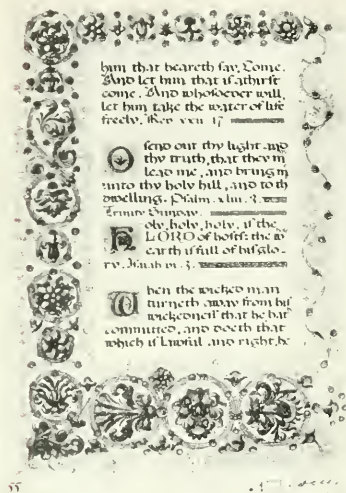 him that heareth say, Come.
And let him that is athirst
come. And whosoever will,
let him take the water of life
freely. Rev xxii 17
O send out thy light and
thy truth, that they m
lead me, and bring m
unto thy holy hill, and to th
dwelling. Psalm. xliii. 3.
Trinity Sunday.
Holy, holy, holy, is the
LORD of hosts: the w
earth is full of his glo-
ry. Isaiah vi. 3.
When the wicked man
turneth away from his
wickedness that he hat
committed, and doeth that
which is lawful and right, he
55